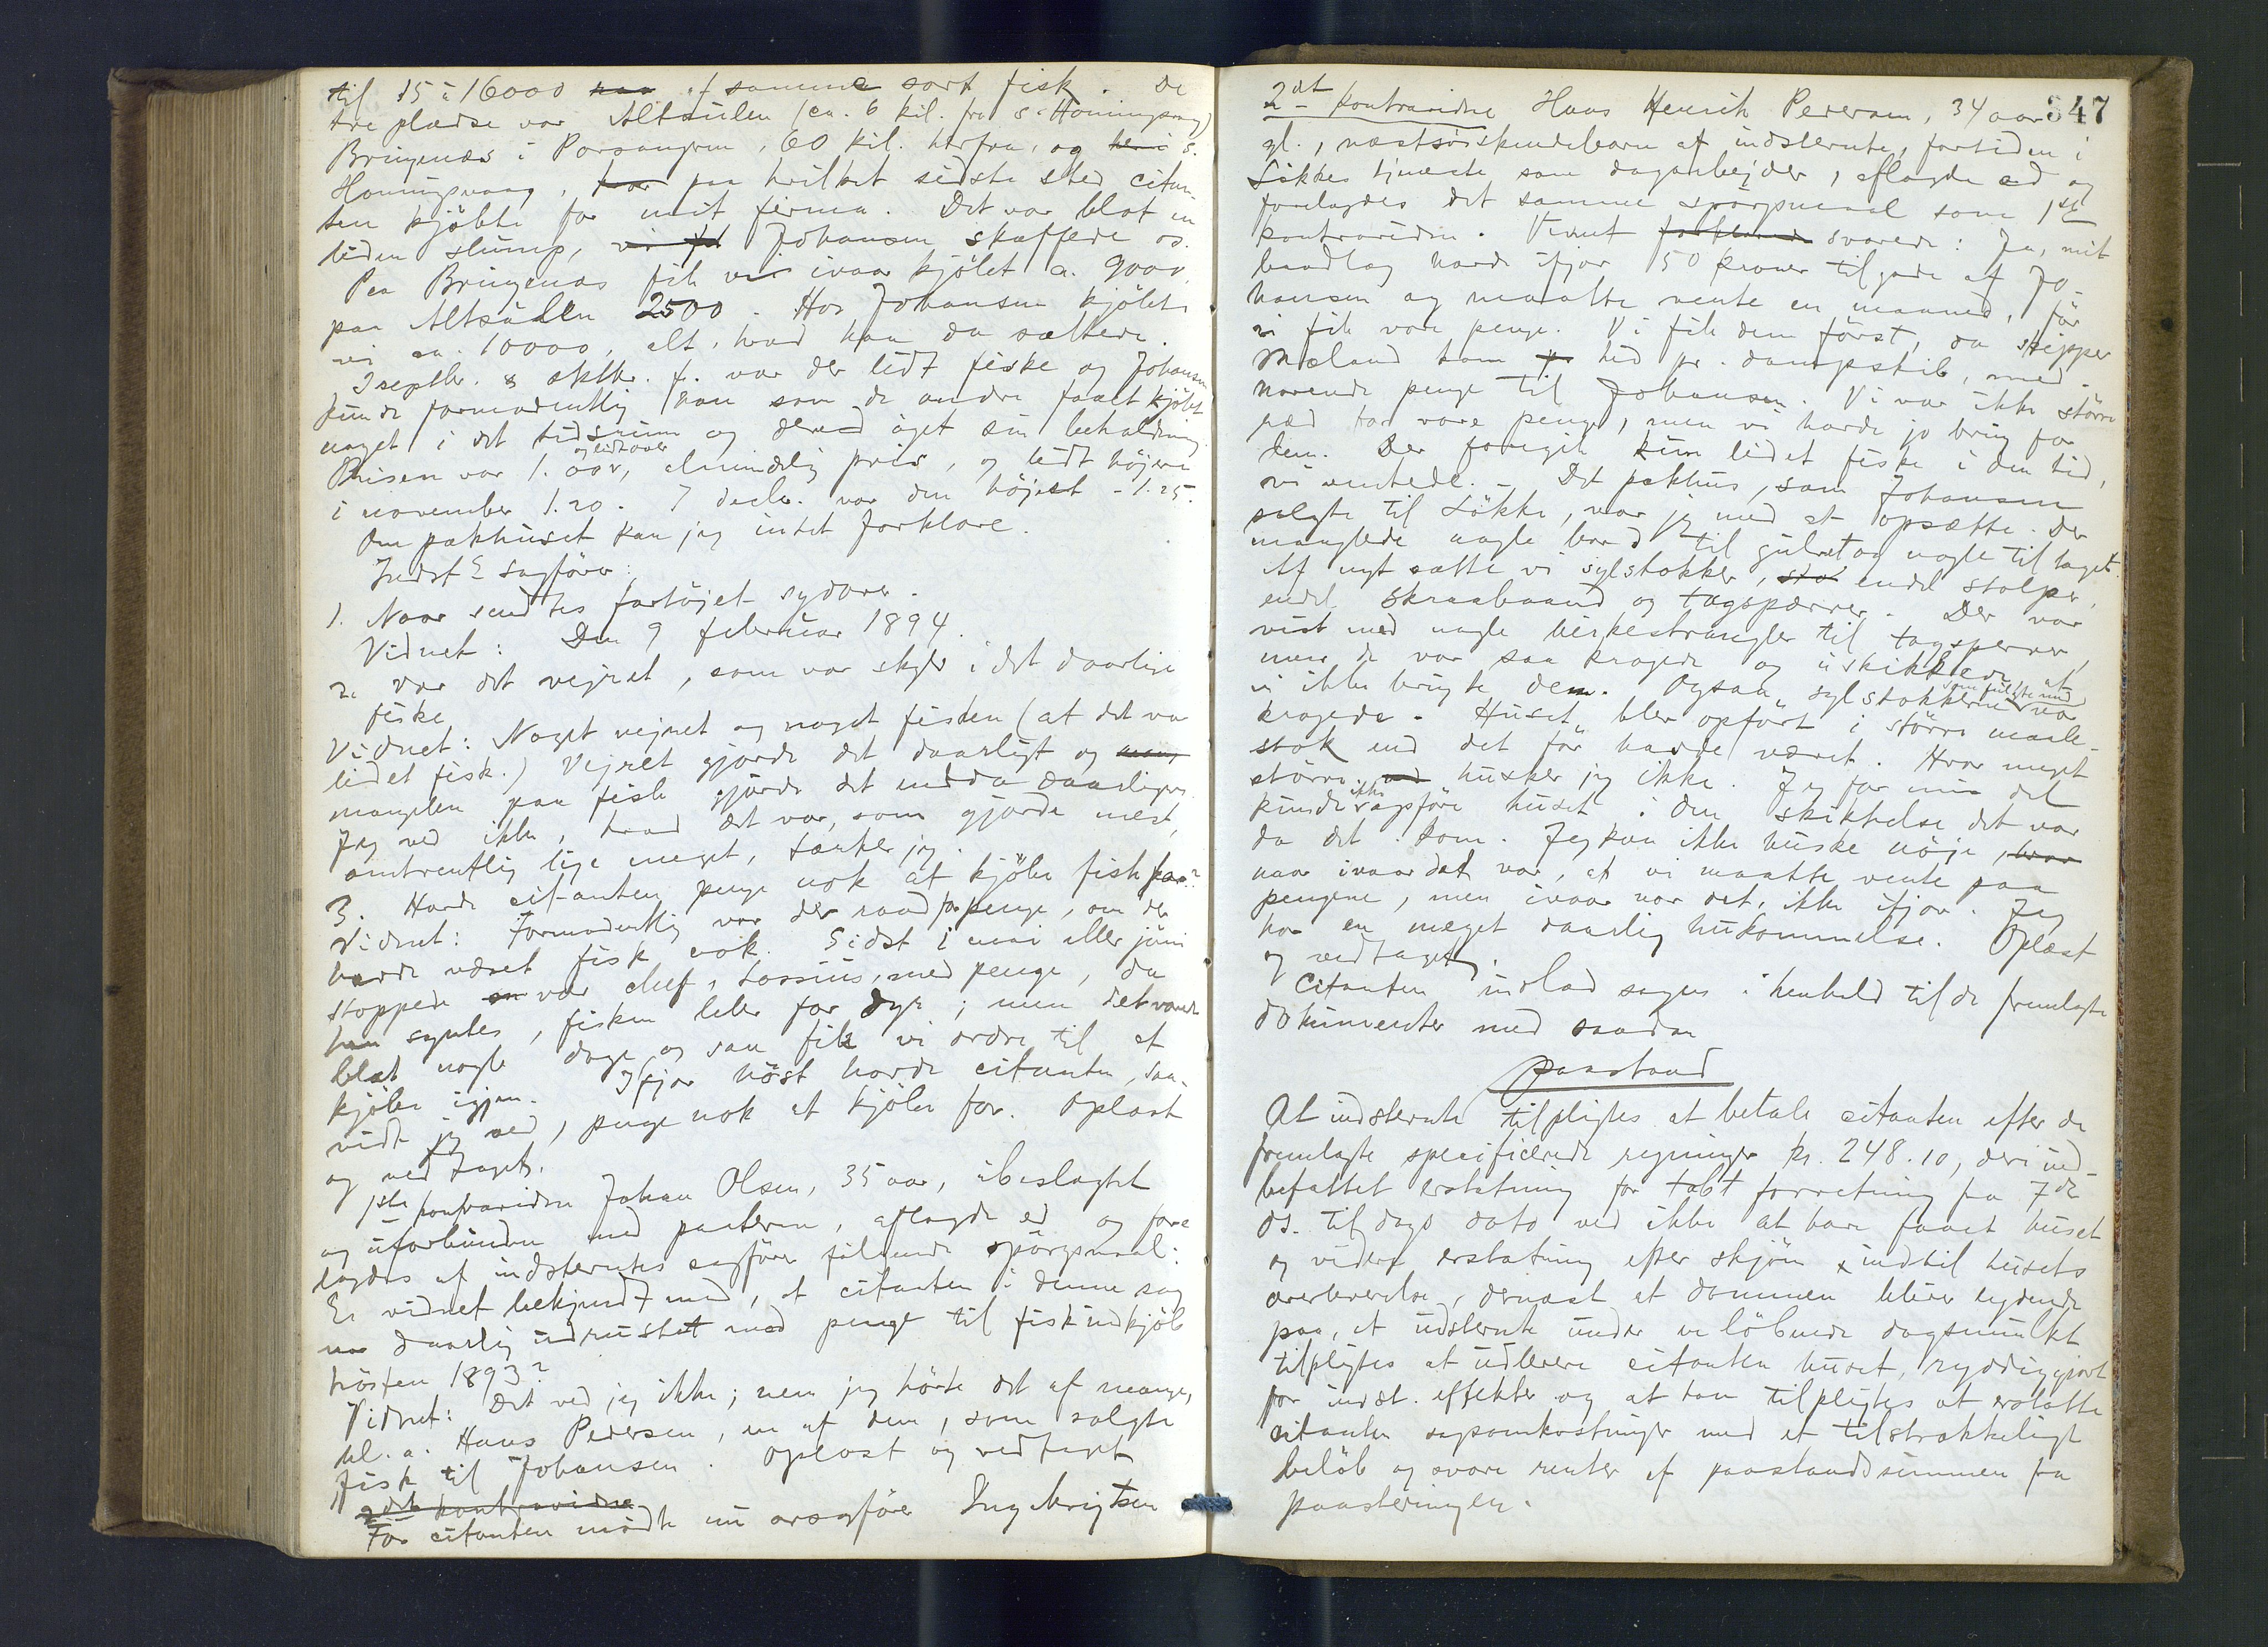 til 15 à 16000 af samme sort fisk. De
tre pladse var Altsulen (ca. 6 kil. fra S. Honningsvaag)
Bringenæs i Porsangeren, 60 kil. herfra, og S.
Honningsvaag, paa hvilket sidste sted citan-
ten kjøbte for mit firma. Det var blot en
liden slump, Johansen skaffede os.
Paa Bringenæs fik vi ivaar kjøbt ca. 9000,
paa Altsulen 2500. Hos Johansen kjøbte
vi ca. 10000, alt, hvad han da
I septbr. & oktbr. f. var der lidt fiske og Johansen
kunde formodentlig som de andre faaet kjøbt
noget i det tidsrum og derved øget sin beholdning
Prisen var 1.00 og lidt over, almindelig pris, og lidt højere
i november 1.20. I decbr. var den højest - 1.25.
Om pakhuset kan jeg intet forklare.
Indst.s sagfører:
1. Naar sendtes fartøjet sydover.
Vidnet: Den 9 februar 1894.
2. Var det vejret, som var skyld i det daarlige
fiske
Vidnet: Noget vejret og noget fisken (at det var
lidet fisk.) Vejret gjorde det daarligt og
mangelen paa fisk gjorde det endda daarligere
Jeg ved ikke, hvad det var, som gjorde mest,
omtrentlig lige meget, tænker jeg.
3. Havde citanten penge nok at kjøbe fisk for?
Vidnet: Formodentlig var der raad for penge, om der
havde været fisk nok. Sidst i mai eller juni
stoppede vor chef, Lossius, med penge, da
han syntes, fisken blev for dyr; men det varede
blot nogle dage og saa fik vi ordre til at
kjøbe igjen. Ifjor høst havde citanten, saa-
vidt jeg ved, penge nok at kjøbe for. Oplæst
og vedtaget.
1ste kontravidne Johan Olsen, 35 aar, ubeslægtet
og uforbunden med parterne, aflagde ed og fore-
lagdes af indstevntes sagfører følgende spørgsmaal:
Er vidnet bekjendt med, at citanten i denne sag
var daarlig udrustet med penge til fiskindkjøb
høsten 1893?
Vidnet: Det ved jeg ikke; men jeg hørte det af mange,
bl. a. Hans Pedersen, en af dem, som solgte
fisk til Johansen. Oplæst og vedtaget
2det kontravidne
For citanten mødte nu ovrsagfører Ingebrigtsen
347
2det kontravidne Hans Henrik Pedersen, 34 aar
gl., næstsøskendebarn af indstevnte, fortiden i
Løkkes tjeneste som dagarbejder, aflagde ed og
forelagdes det samme spørgsmaal som 1ste
kontravidne. Vidnet svarede: Ja, mit
baadlag havde ifjor 50 kroner tilgode af Jo-
hansen og maatte vente en maaned, før
vi fik vore penge. Vi fik dem først, da skipper
Mæland kom hid pr. dampskib, med-
havende penge til Johansen. Vi var ikke større
ræd for vore penge, men vi havde jo brug for
dem. Der foregik kun lidet fiske i den tid,
vi ventede. - Det pakhus, som Johansen
solgte til Løkke, var jeg med at opsætte. Der
manglede nogle bord til gulvet og nogle til taget.
Af nyt satte vi sylstokker, endel stolper,
endel skraabaand og tagsparrer. Der var
vist med nogle birkestrangler til tagsperrer,
men de var saa krogede og uskikkede, at
vi ikke brugte dem. Ogsaa sylstokkerne som fulgte med var
krogede. Huset blev opført i større maale-
stok end det før havde været. Hvor meget
større husker jeg ikke. Jeg for min del
kunde ikke opføre huset i den skikkelse det var
da det kom. Jeg kan ikke huske nøje,
naar ivaar det var, at vi maatte vente paa
pengene, men ivaar var det, ikke ifjor. Jeg
har en meget daarlig hukommelse. Oplæst
og vedtaget.
Citanten indlod sagen i henhold til de fremlagte
dokumenter med saadan
Paastand
At indstevnte tilpligtes at betale citanten efter de
fremlagte specificerede regninger kr. 248.10, deri ind-
befattet erstatning for tabt forretning fra 7de
ds. til dags dato ved ikke at have faaet huset
og videre erstatning efter skjøn indtil husets
overleverelse, dernæst at dommen bliver lydende
paa, at indstevnte under en løbende dagsmulkt
tilpligtes at udlevere citanten huset, ryddiggjort
for indst. effekter og at han tilpligtes at erstatte
citanten sagsomkostninger med et tilstrækkeligt
beløb og svare renter af paastandssummen fra
paastevningen.